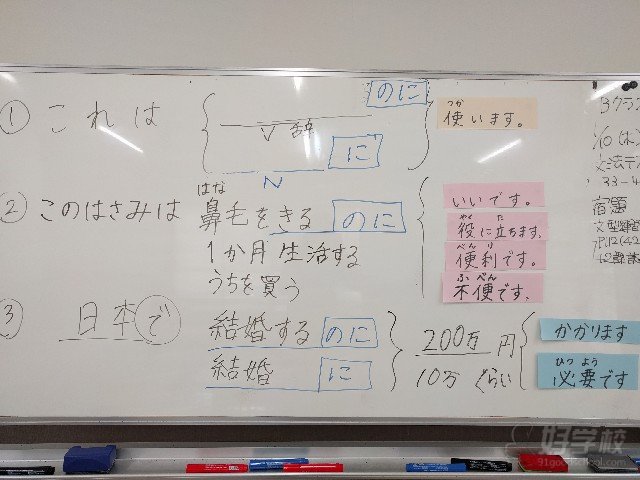 ① これは
V辞 のに
N に
つか
使います。
② このはさみは
はな
鼻毛をきる のに
1か月生活する
うちを買う
いいです。
やく た
役に立ちます。
べんり
便利です。
ふべん
不便です。
③ 日本で
結婚する のに
結婚 に
200万円
10万ぐらい
かかります
ひつ よう
必要です
Bクラ
文法テ
33-4
宿題
好学校